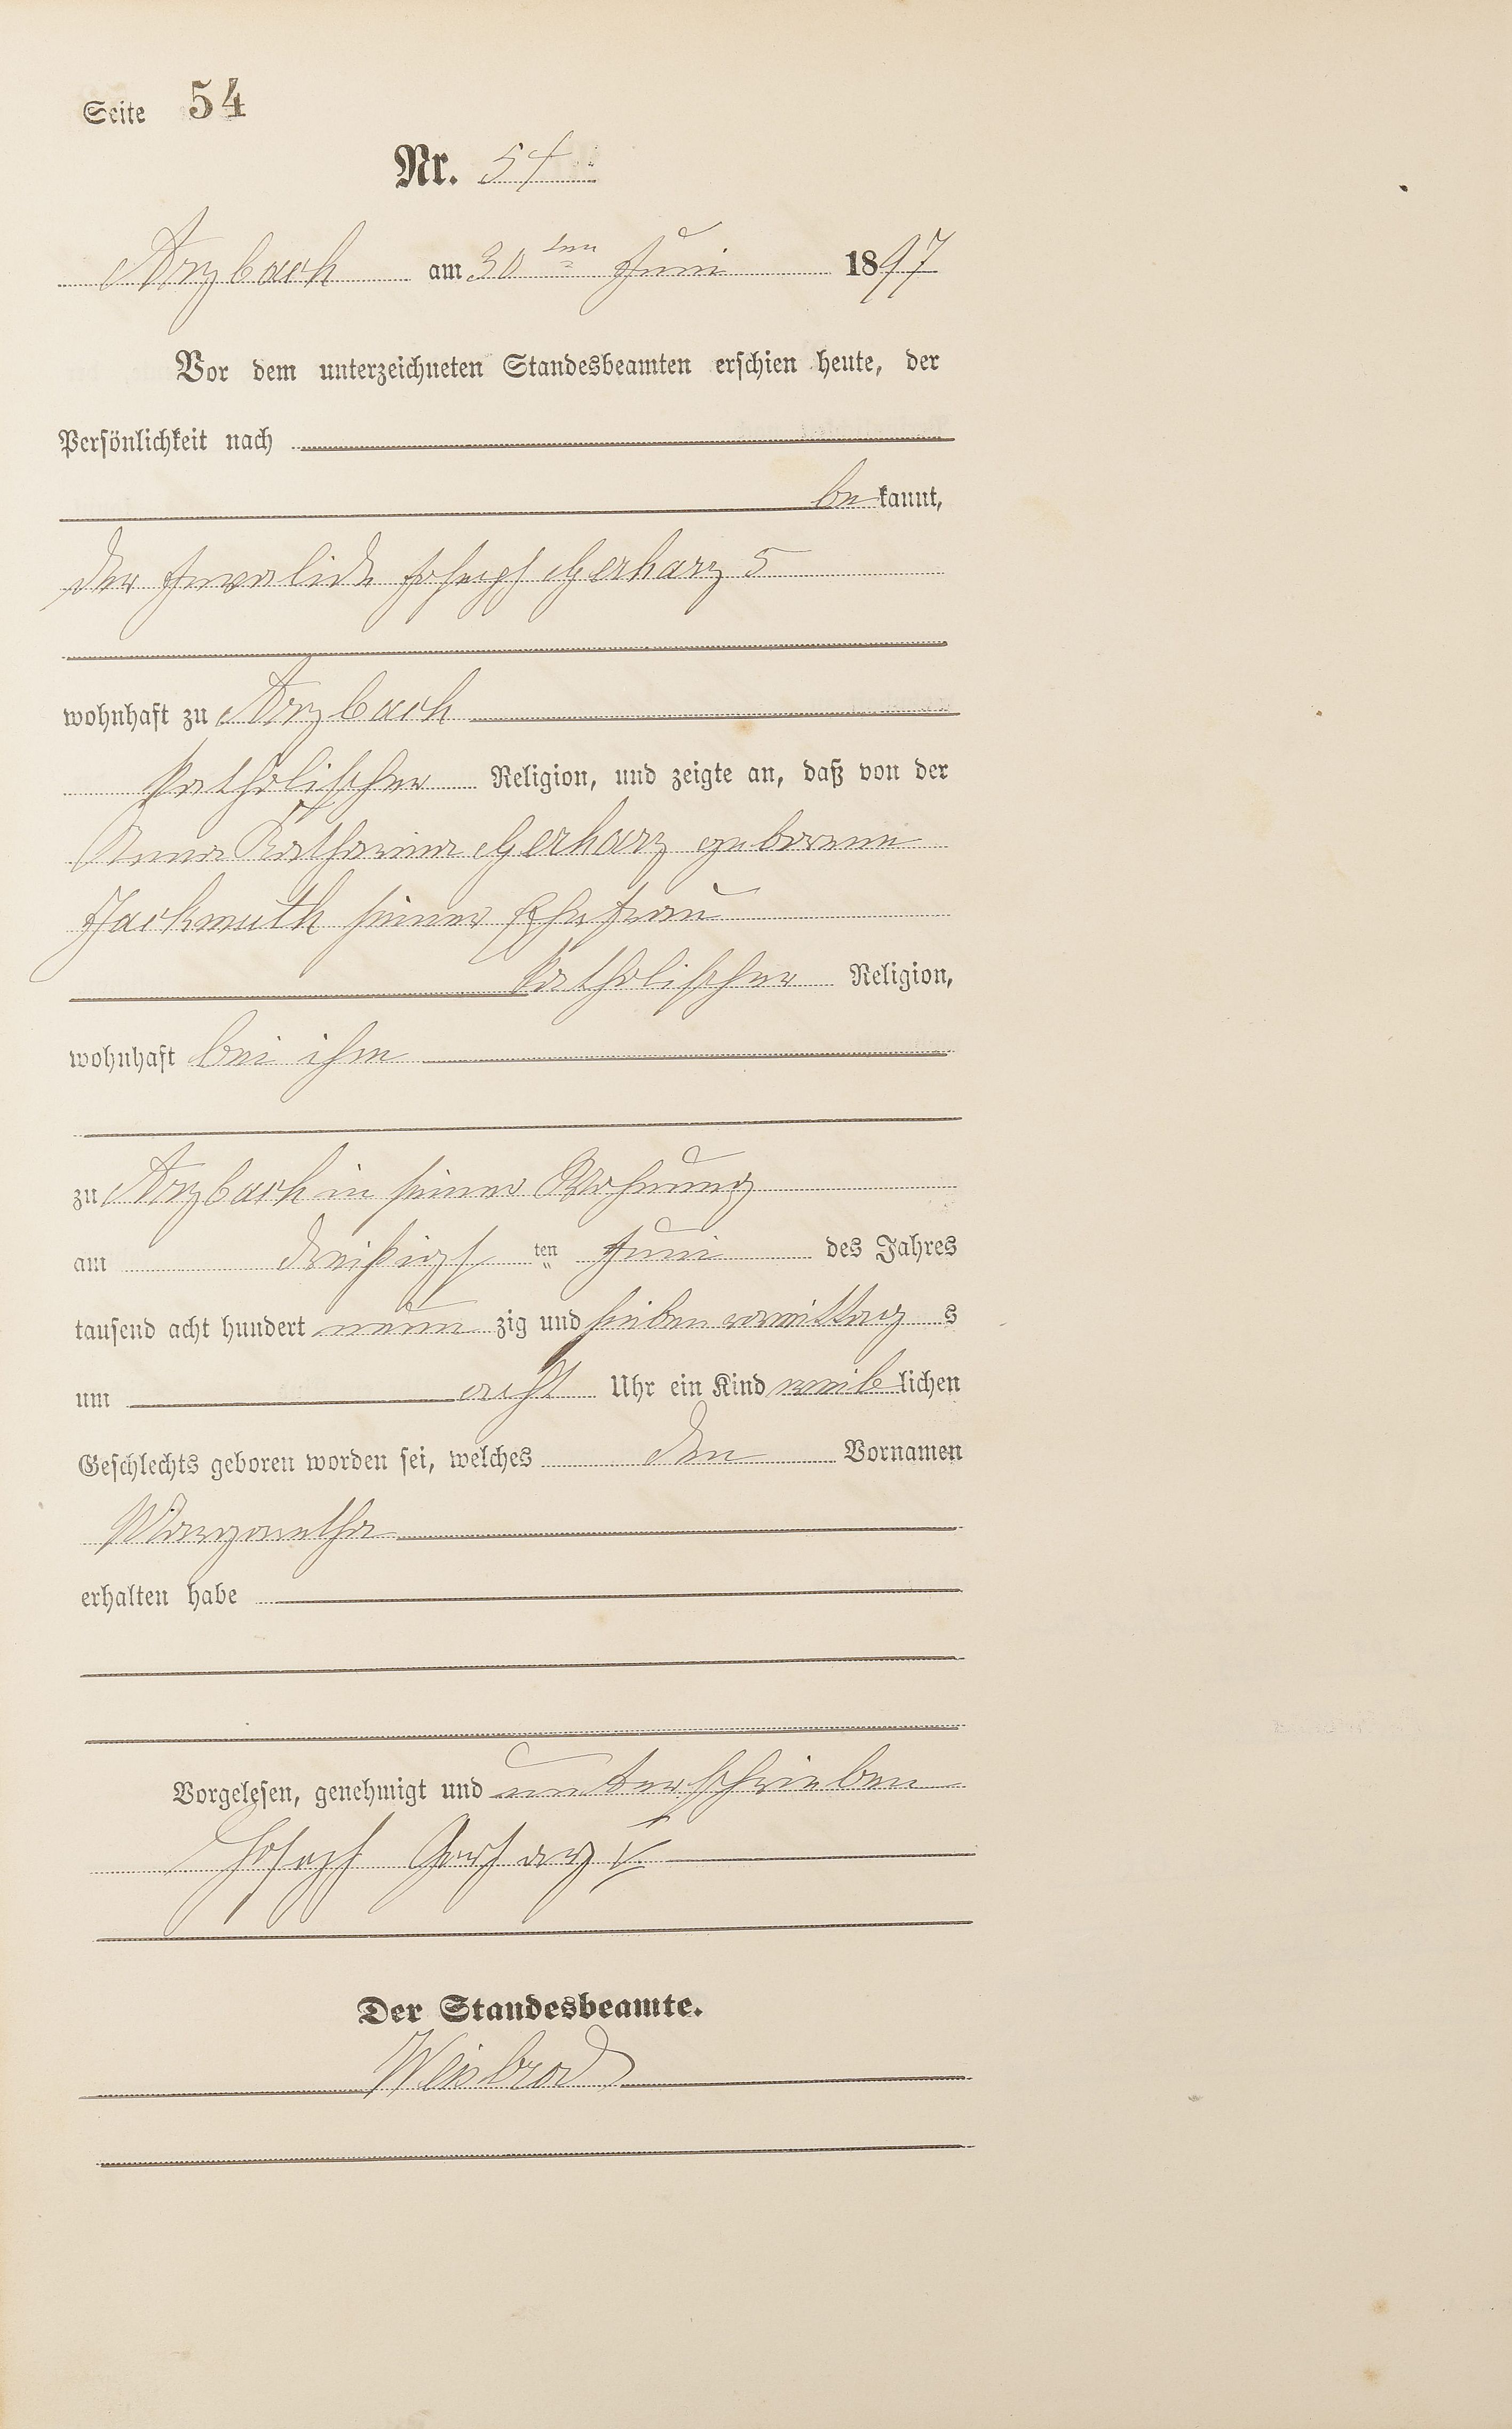 Seite 54
Nr. 54
Arzbach am 30ten Juni 1897
Vor dem unterzeichneten Standesbeamten erschien heute, der
Persönlichkeit nach
bekannt,
der Invalide Joseph Gerharz 5
wohnhaft zu Arzbach
katholischer Religion, und zeigte an, daß von der
Anna Katharina Gerharz geborene
Jackmuth seiner Ehefrau
katholischer Religion,
wohnhaft bei ihm
zu Arzbach in seiner Wohnung
am dreißigsten Juni des Jahres
tausend acht hundert neun zig und sieben vormittags
um acht Uhr ein Kind weiblichen
Geschlechts geboren worden sei, welches den Vornamen
Margaretha
erhalten habe
Vorgelesen, genehmigt und unterschrieben
Joseph Gerharz V
Der Standesbeamte.
Weisbrod